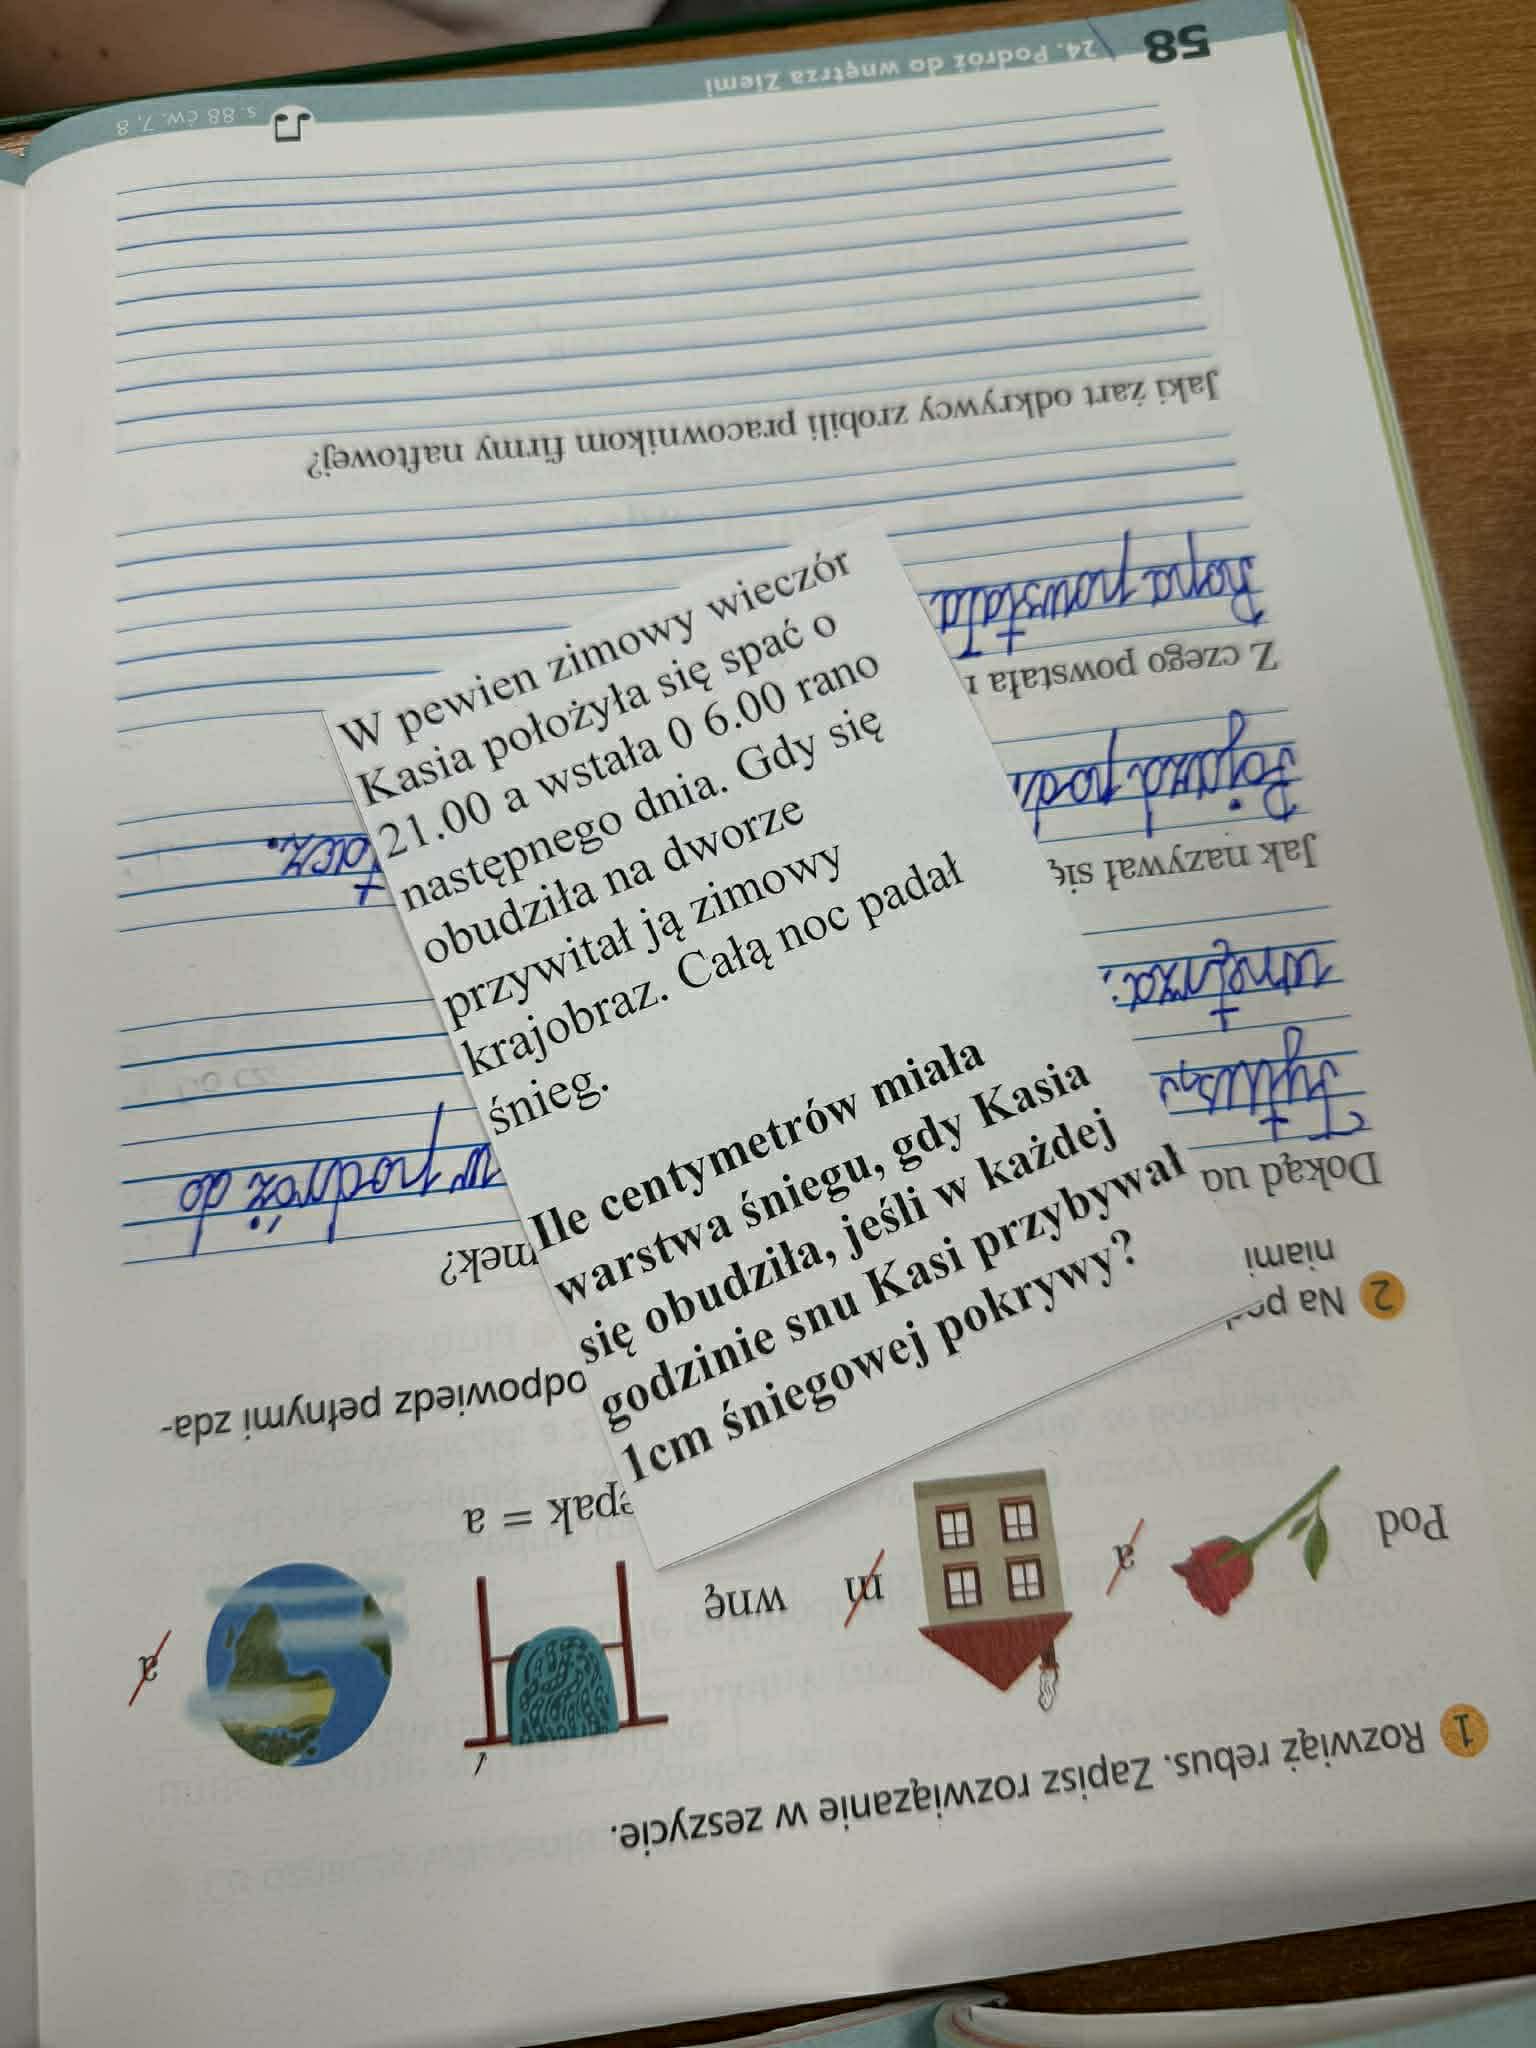 1 Rozwiąż rebus. Zapisz rozwiązanie w zeszycie.
Pod
a
m
wnę
a
epak = a
2 Na
odpowiedz pełnymi zda-
niami
Dokąd
mek?
Tytus
w podróż do
wnętrza.
Jak nazywał się
Pojazd
Z czego powstała
Ropa powstała
Jaki żart odkrywcy zrobili pracownikom firmy naftowej?
58
24. Podróż do wnętrza Ziemi
s. 88 ćw. 7, 8
W pewien zimowy wieczór
Kasia położyła się spać o
21.00 a wstała 0 6.00 rano
następnego dnia. Gdy się
obudziła na dworze
przywitał ją zimowy
krajobraz. Całą noc padał
śnieg.
Ile centymetrów miała
warstwa śniegu, gdy Kasia
się obudziła, jeśli w każdej
godzinie snu Kasi przybywał
1cm śniegowej pokrywy?